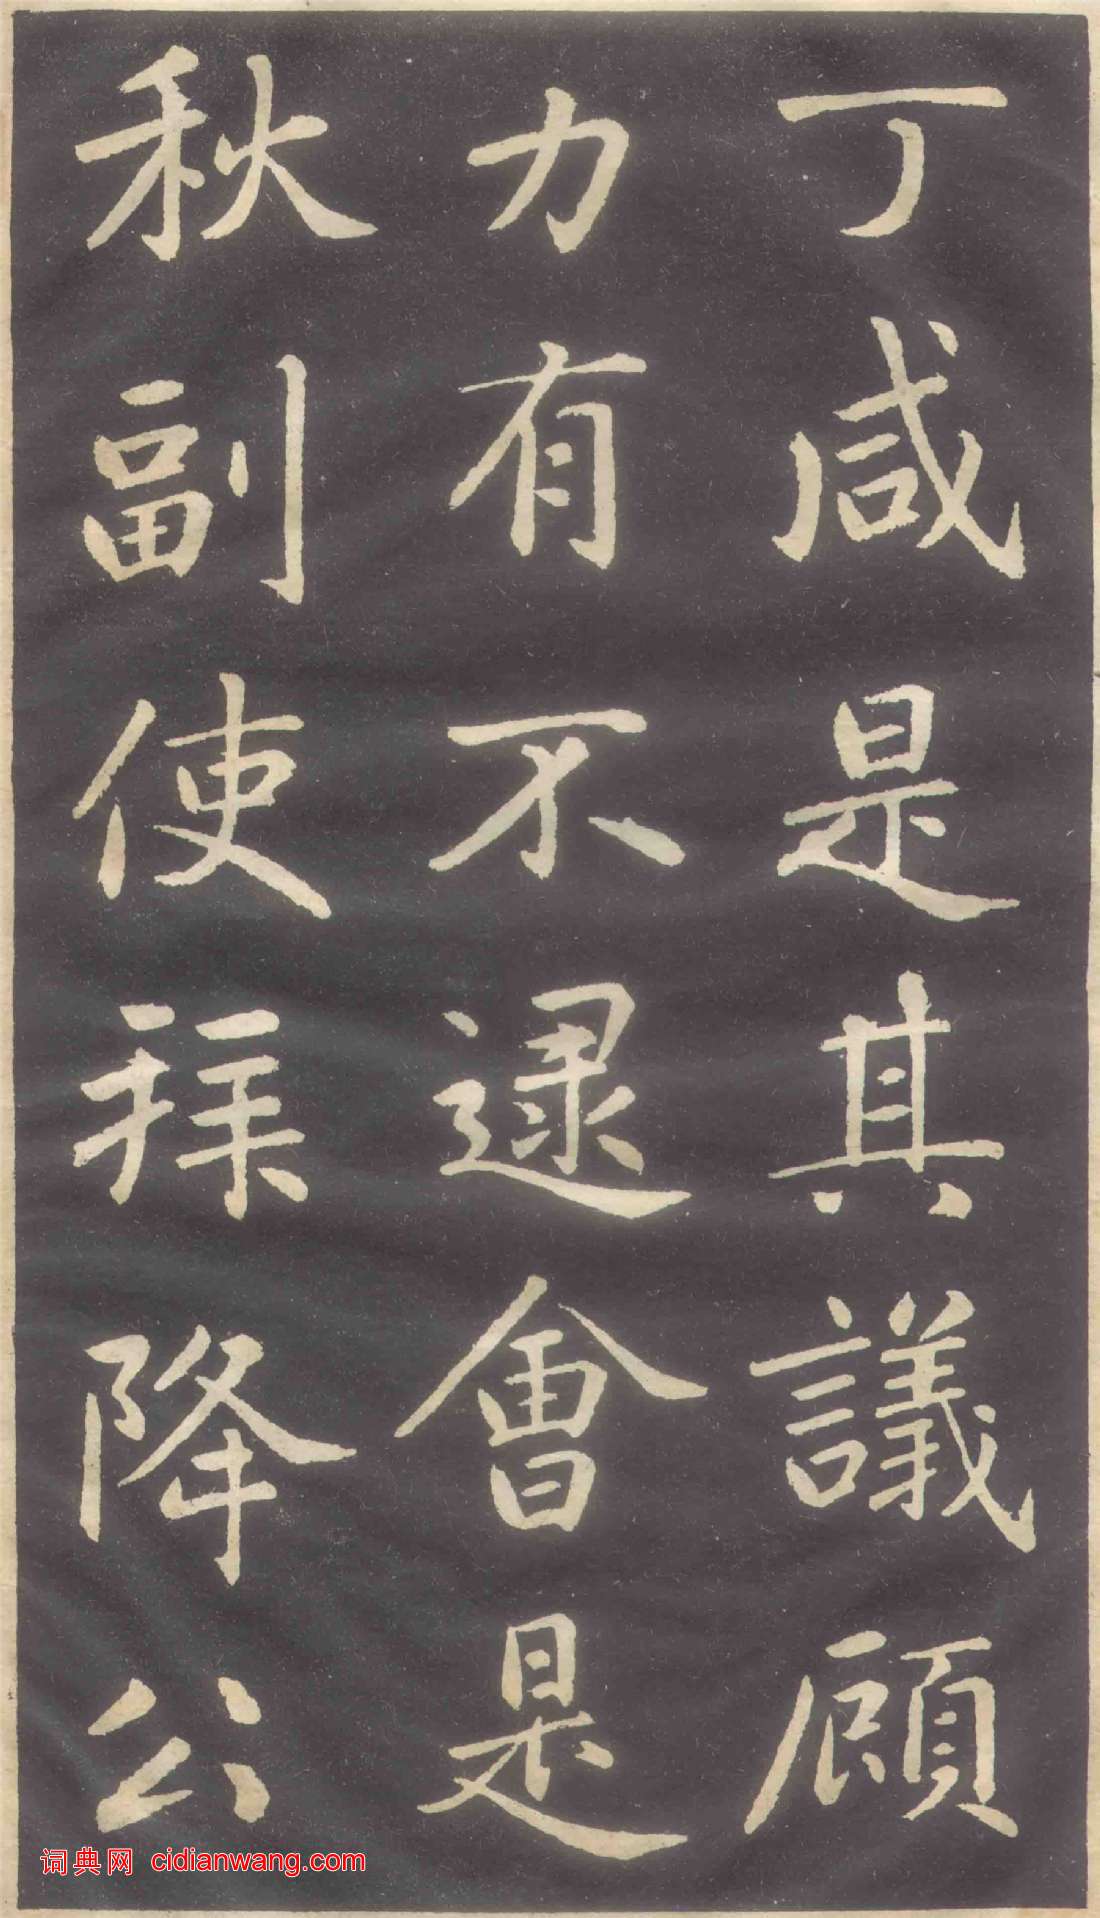 丁咸是其議顧
力有不逮會是
秋副使拜降公
词典网 cidianwang.com